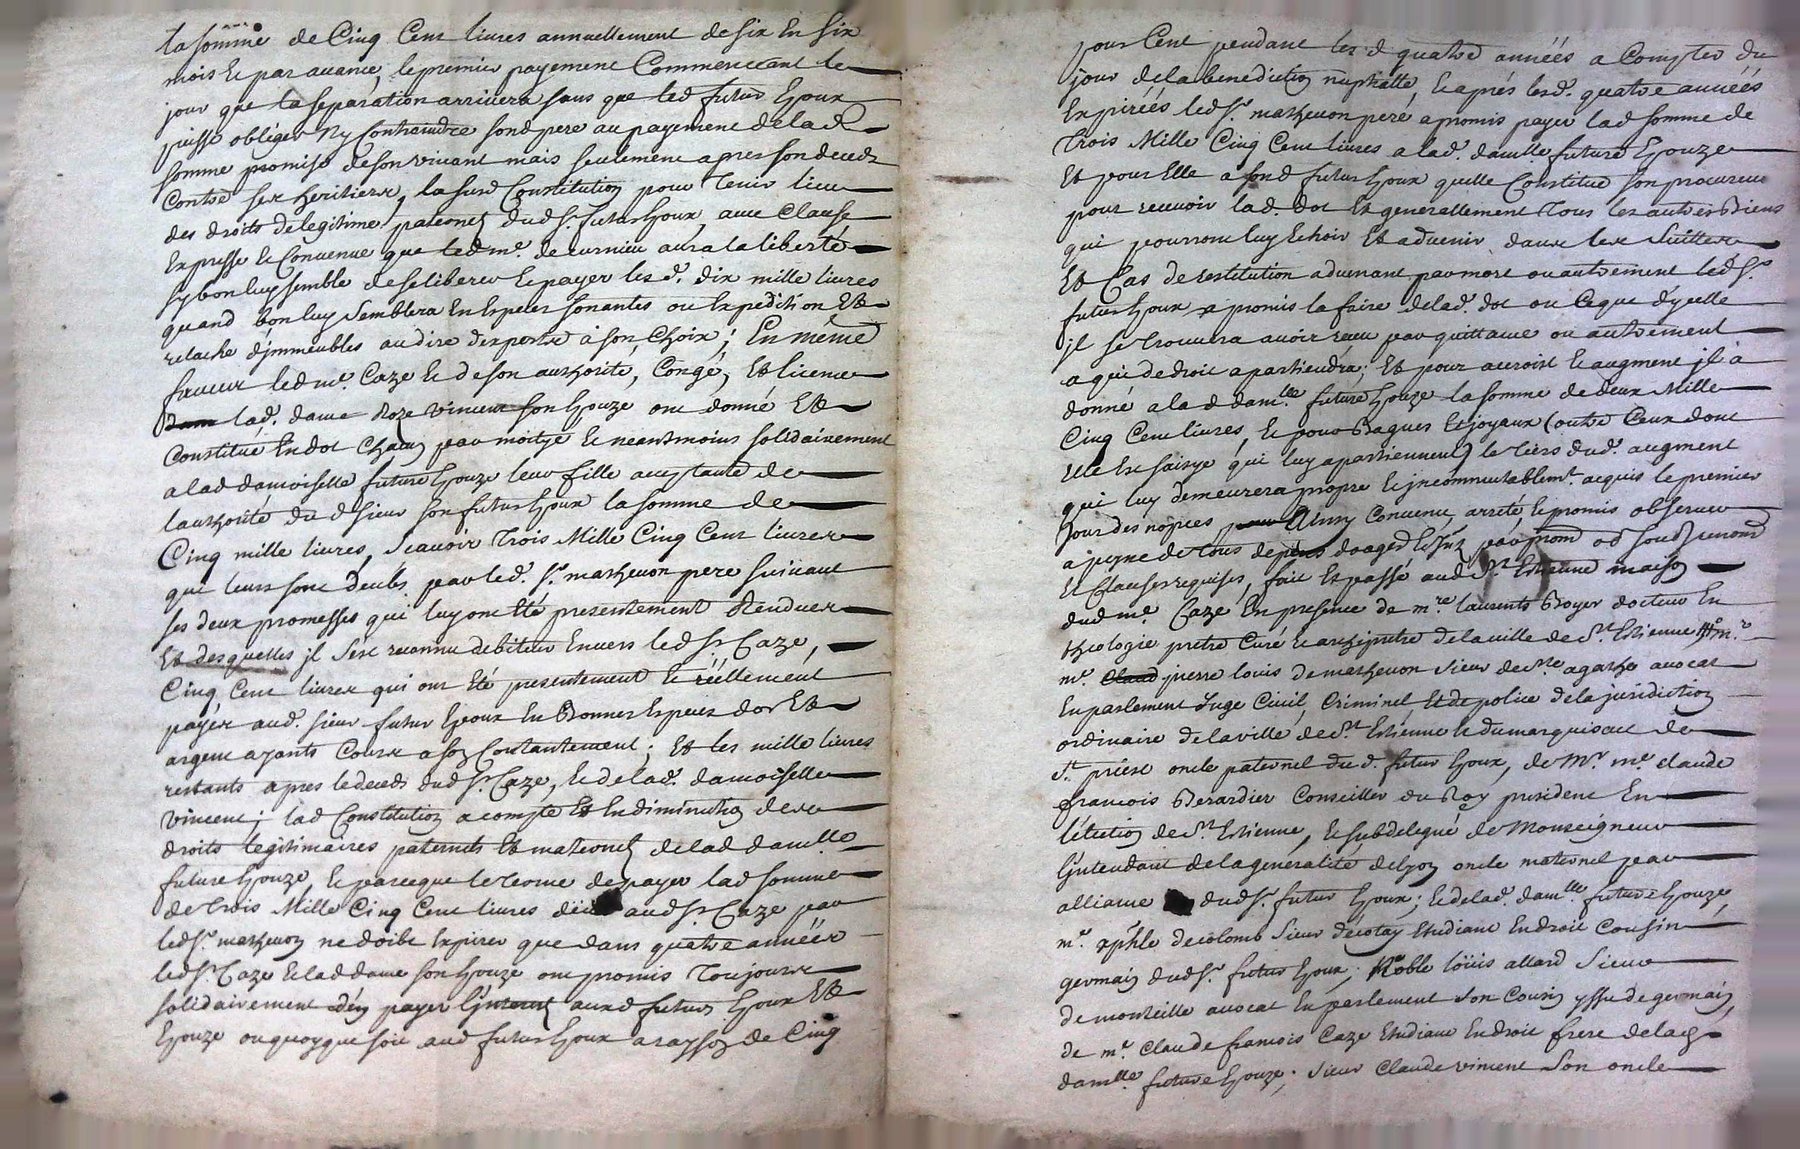 la somme de Cinq Cent livres annuellement de six En six
mois Et par avance, le premier payement Commencant le
jour que la separation arrivera sans que led futur Epoux
puisse obliger Ny Contraindre son d pere au payement de lad
somme promise de son vivant mais seulement apres son deceds
Contre ses heritiers, la susd Constitution pour tenir lieu
des droits de legitime paternel dud Sr. futur Epoux, avec Clause
Expresse Et Convenue que led me. de curnieu aura la liberté
sy bon luy semble de se liberer Et payer les d. dix mille livres
quand bon luy semblera En Especes sonantes ou Expedition Et
relache d'jmmeubles au dire d'experts à son Choix; En même
faveur led me. Caze Et de son authorité, Congé, Et licence
lad. dame Roze vincent son Epouze ont donné Et
Constitué En dot Chacun par moitye Et neantmoins solidairement
a lad damoiselle future Epouze leur fille acceptante de
l'authorité du d sieur son futur Epoux la somme de
Cinq mille livres, scavoir Trois Mille Cinq Cent livres
qui leurs sont deubs par led. Sr. mathevon pere suivant
ses deux promesses qui luy ont Eté presentement Rendues
Et desquelles jl s'est reconnu debiteur Envers led Sr Caze,
Cinq Cent livres qui ont Eté presentement Et réellement
payés aud. sieur futur Epoux En Bonnes Especes d'or Et
argent ayants Cours a son Contantement; Et les mille livres
restants apres le deceds dud Sr. Caze, Et de lad. damoiselle
vincent; lad Constitution a compte Et En diminution des
droits legitimaires paternels Et maternels de lad damlle
future Epouze Et parceque le terme de payer lad somme
de trois Mille Cinq Cent livres deüe aud Sr Caze par
led Sr. mathevon ne doibt Expirer que dans quatre années
led Sr. Caze Et lad dame son Epouze ont promis Toujours
solidairement d'en payer l'jnterest aux d futurs Epoux Et
Epouze ou quoyque soit aud futur Epoux a rayson de Cinq
pour Cent pendant les d quatre années a Compter du
jour de la benediction nuptialle, Et aprés lesd. quatre années
Expirées led Sr. mathevon pere a promis payer lad somme de
Trois Mille Cinq Cent livres a lad. damlle future Epouze
Et pour Elle a son d futur Epoux quelle Constitue son procureur
pour recevoir lad. dot Et generallement Tous les autres Biens
qui pourront luy Echoir Et advenir dans les suittes
Et Cas de restitution advenant par mort ou autrement led Sr.
futur Epoux a promis la faire de lad. dot ou Ce que d'ycelle
jl se trouvera avoir receu par quittance ou autrement
a qui de droit apartiendra; Et pour acroist Et augment jl à
donné a lad damlle. future Epouze la somme de deux Mille
Cinq Cent livres, Et pour Bagues Et joyaux (outre Ceux dont
elle En saisye qui luy apartiennent) le tiers dud. augment
qui luy demeurera propre Et jncommutablemt. acquis le premier
Jour des nopces Ainsy Convenu, arreté, Et promis observer
a peyne de tous depens domages Et Jnt par prom ob soub renond
Et Clauses requises, fait Et passé aud St Estienne maison
dud me. Caze En presence de mre. laurents Royer docteur En
theologie pretre Curé Et archipretre de la ville de St. Estienne mr.
me. pierre louis de mathevon sieur de Ste agathe avocat
En parlement Juge Civil, Criminel Et de police de la jurisdiction
ordinaire de la ville de St. Estienne Et du marquisat de
St. priest oncle paternel du d. futur Epoux, de Mr. me. claude
francois Berardier Conseiller du Roy president En
l'élection de St. Estienne, Et subdelegué de Monseigneur
l'jntendant de la généralité de lyon oncle maternel par
alliance dud Sr. futur Epoux; Et de lad. damlle future Epouze,
mr. xphle de colomb sieur d'ecotay Etudiant En droit cousin
germain dud Sr. futur Epoux; Noble loüis allard sieur
de monteille avocat En parlement son Cousin yssu de germain,
de me. Claude francois Caze Etudiant En droit frere de lad
damlle future Epouze; sieur Claude vincent son oncle